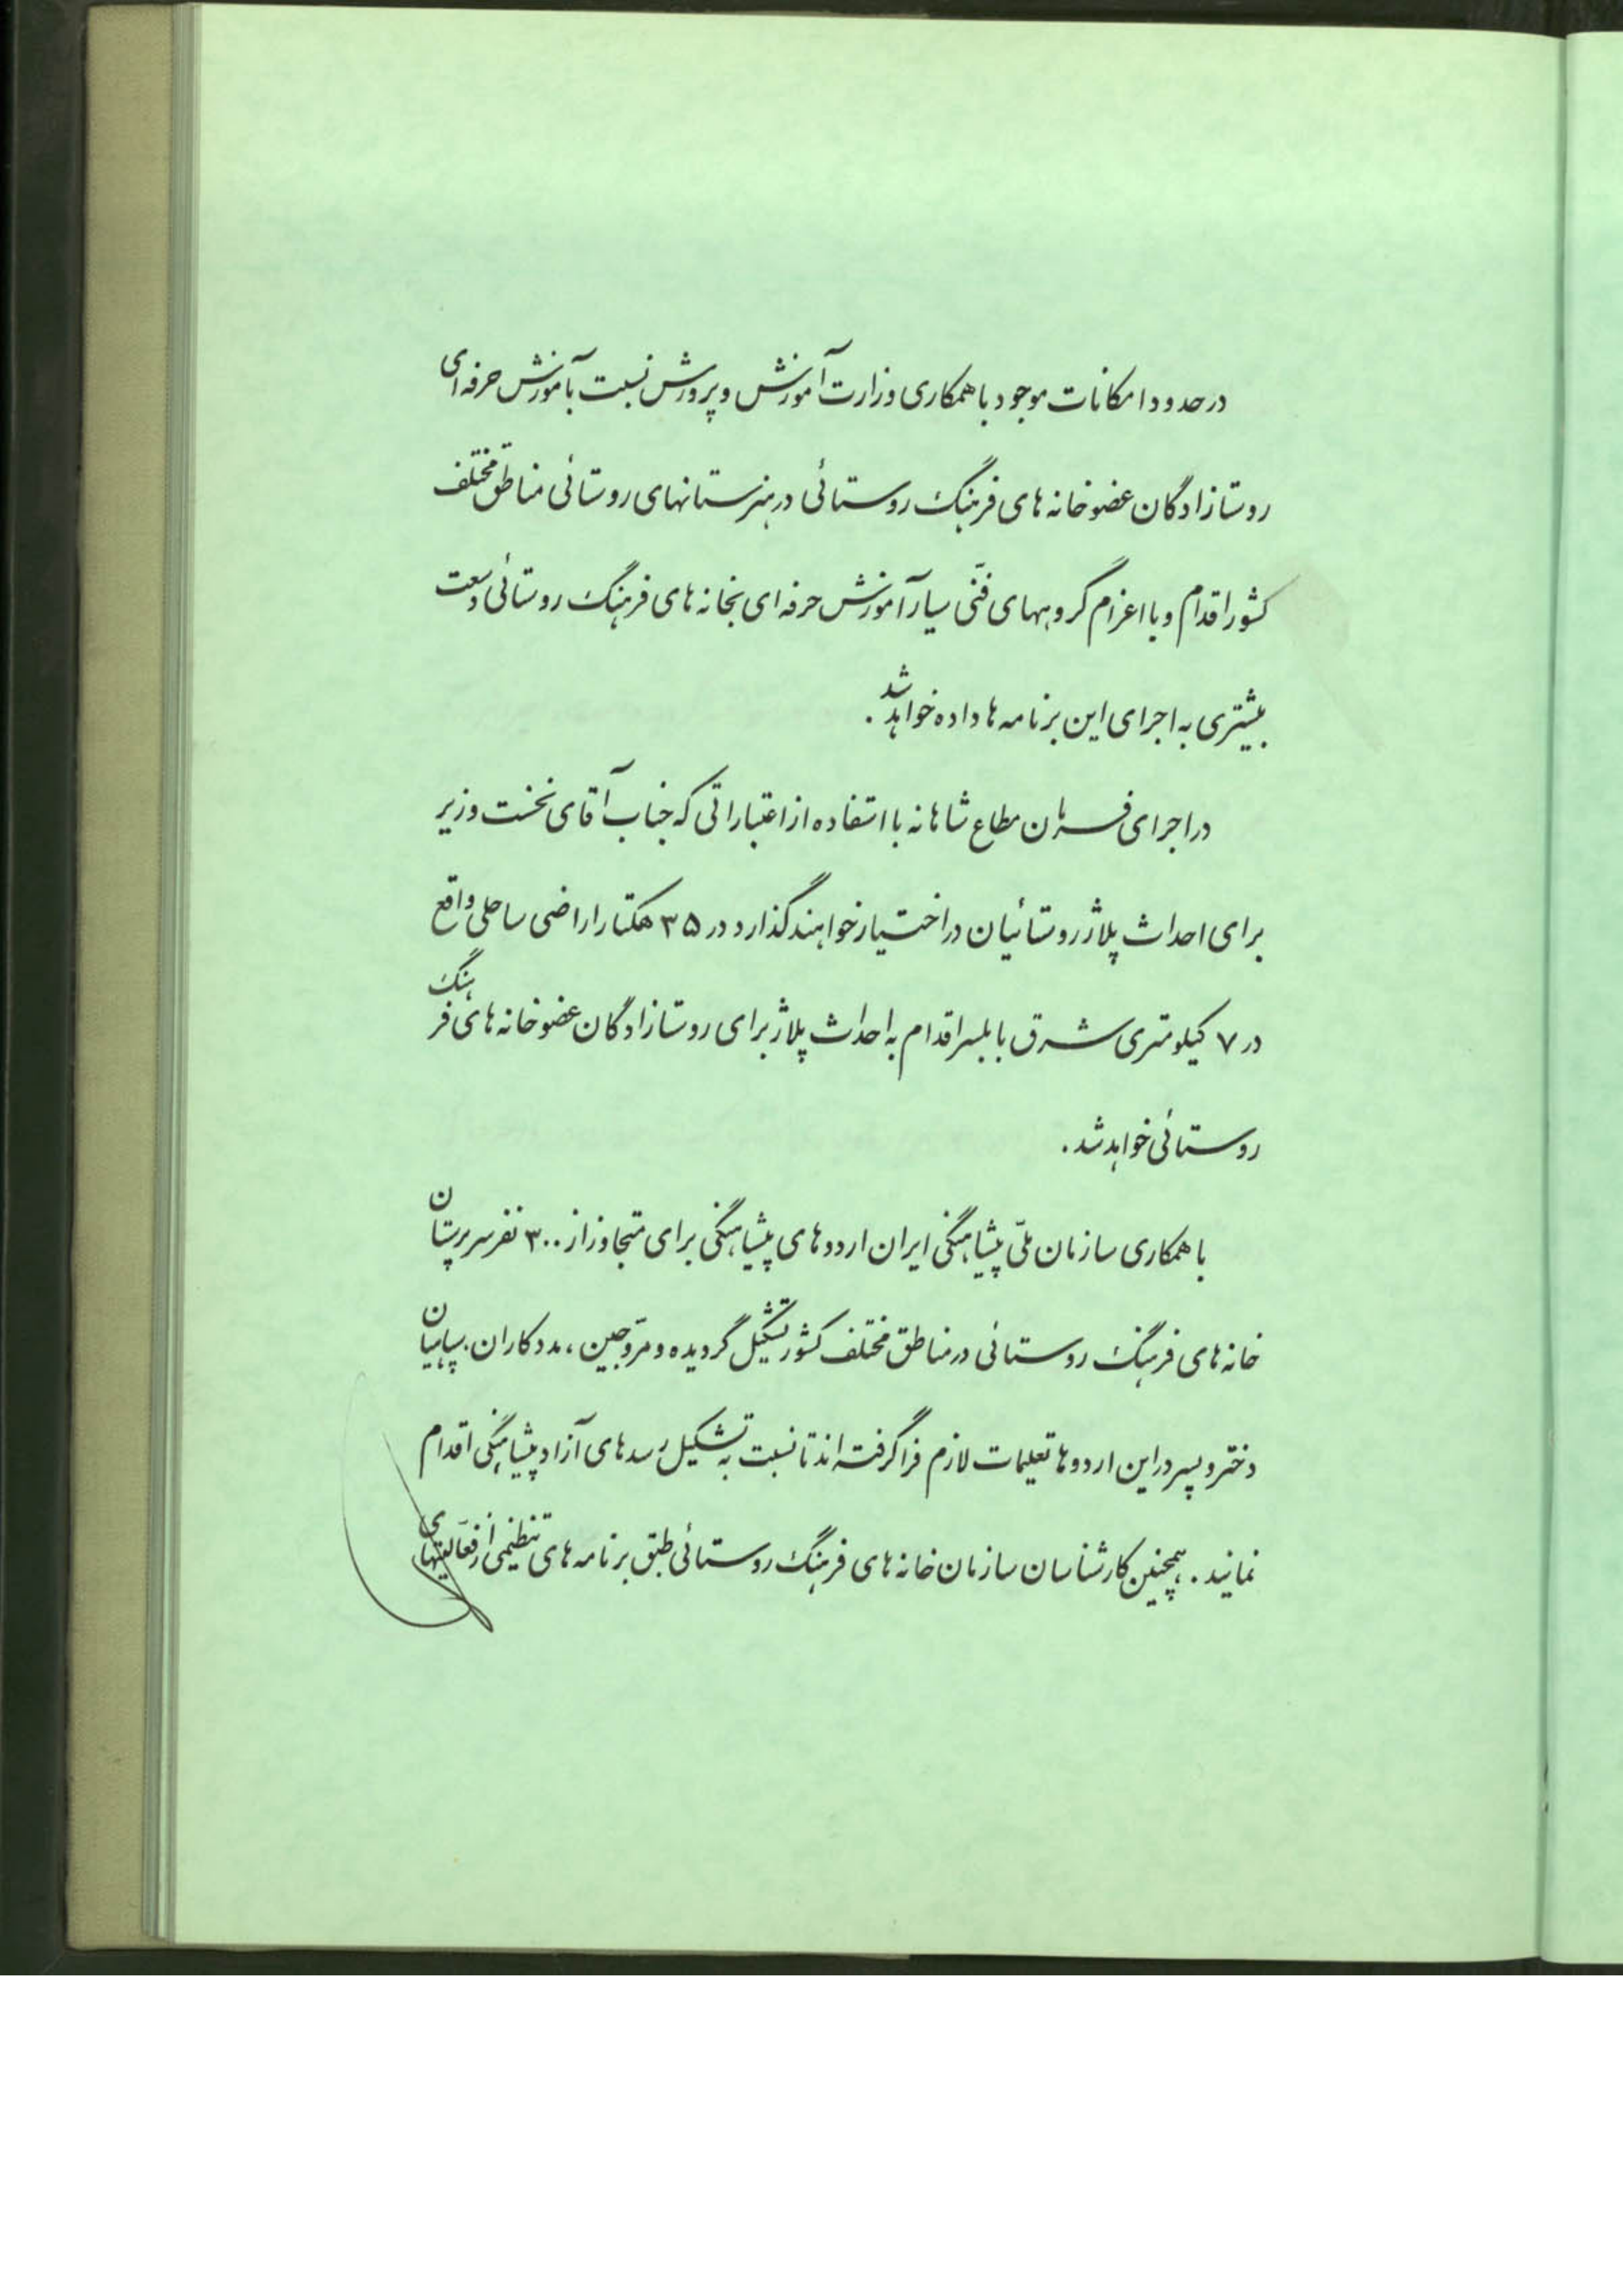 در حدود امکانات موجود با همکاری وزارت آموزش و پرورش نسبت بآموزش حرفه‌ای
روستازادگان عضو خانه‌های فرهنگ روستائی در هنرستانهای روستائی مناطق مختلف
کشور اقدام و با اعزام گروههای فنّی سیار آموزش حرفه‌ای بخانه‌های فرهنگ روستائی وسعت
بیشتری به اجرای این برنامه‌ها داده خواهد شد.
در اجرای فرمان مطاع شاهانه با استفاده از اعتباراتی که جناب آقای نخست وزیر
برای احداث پلاژ روستائیان در اختیار خواهند گذارد در ۳۵ هکتار اراضی ساحلی واقع
در ۷ کیلومتری شرق بابلسر اقدام به احداث پلاژ برای روستازادگان عضو خانه‌های فرهنگ
روستائی خواهد شد.
با همکاری سازمان ملّی پیشاهنگی ایران اردوهای پیشاهنگی برای متجاوز از ۳۰۰ نفر سرپرستان
خانه‌های فرهنگ روستائی در مناطق مختلف کشور تشکیل گردیده و مروّجین، مددکاران، سپاهیان
دختر و پسر در این اردوها تعلیمات لازم فرا گرفته‌اند تا نسبت به تشکیل رسدهای آزاد پیشاهنگی اقدام
نمایند. همچنین کارشناسان سازمان خانه‌های فرهنگ روستائی طبق برنامه‌های تنظیمی از فعّالیتهای